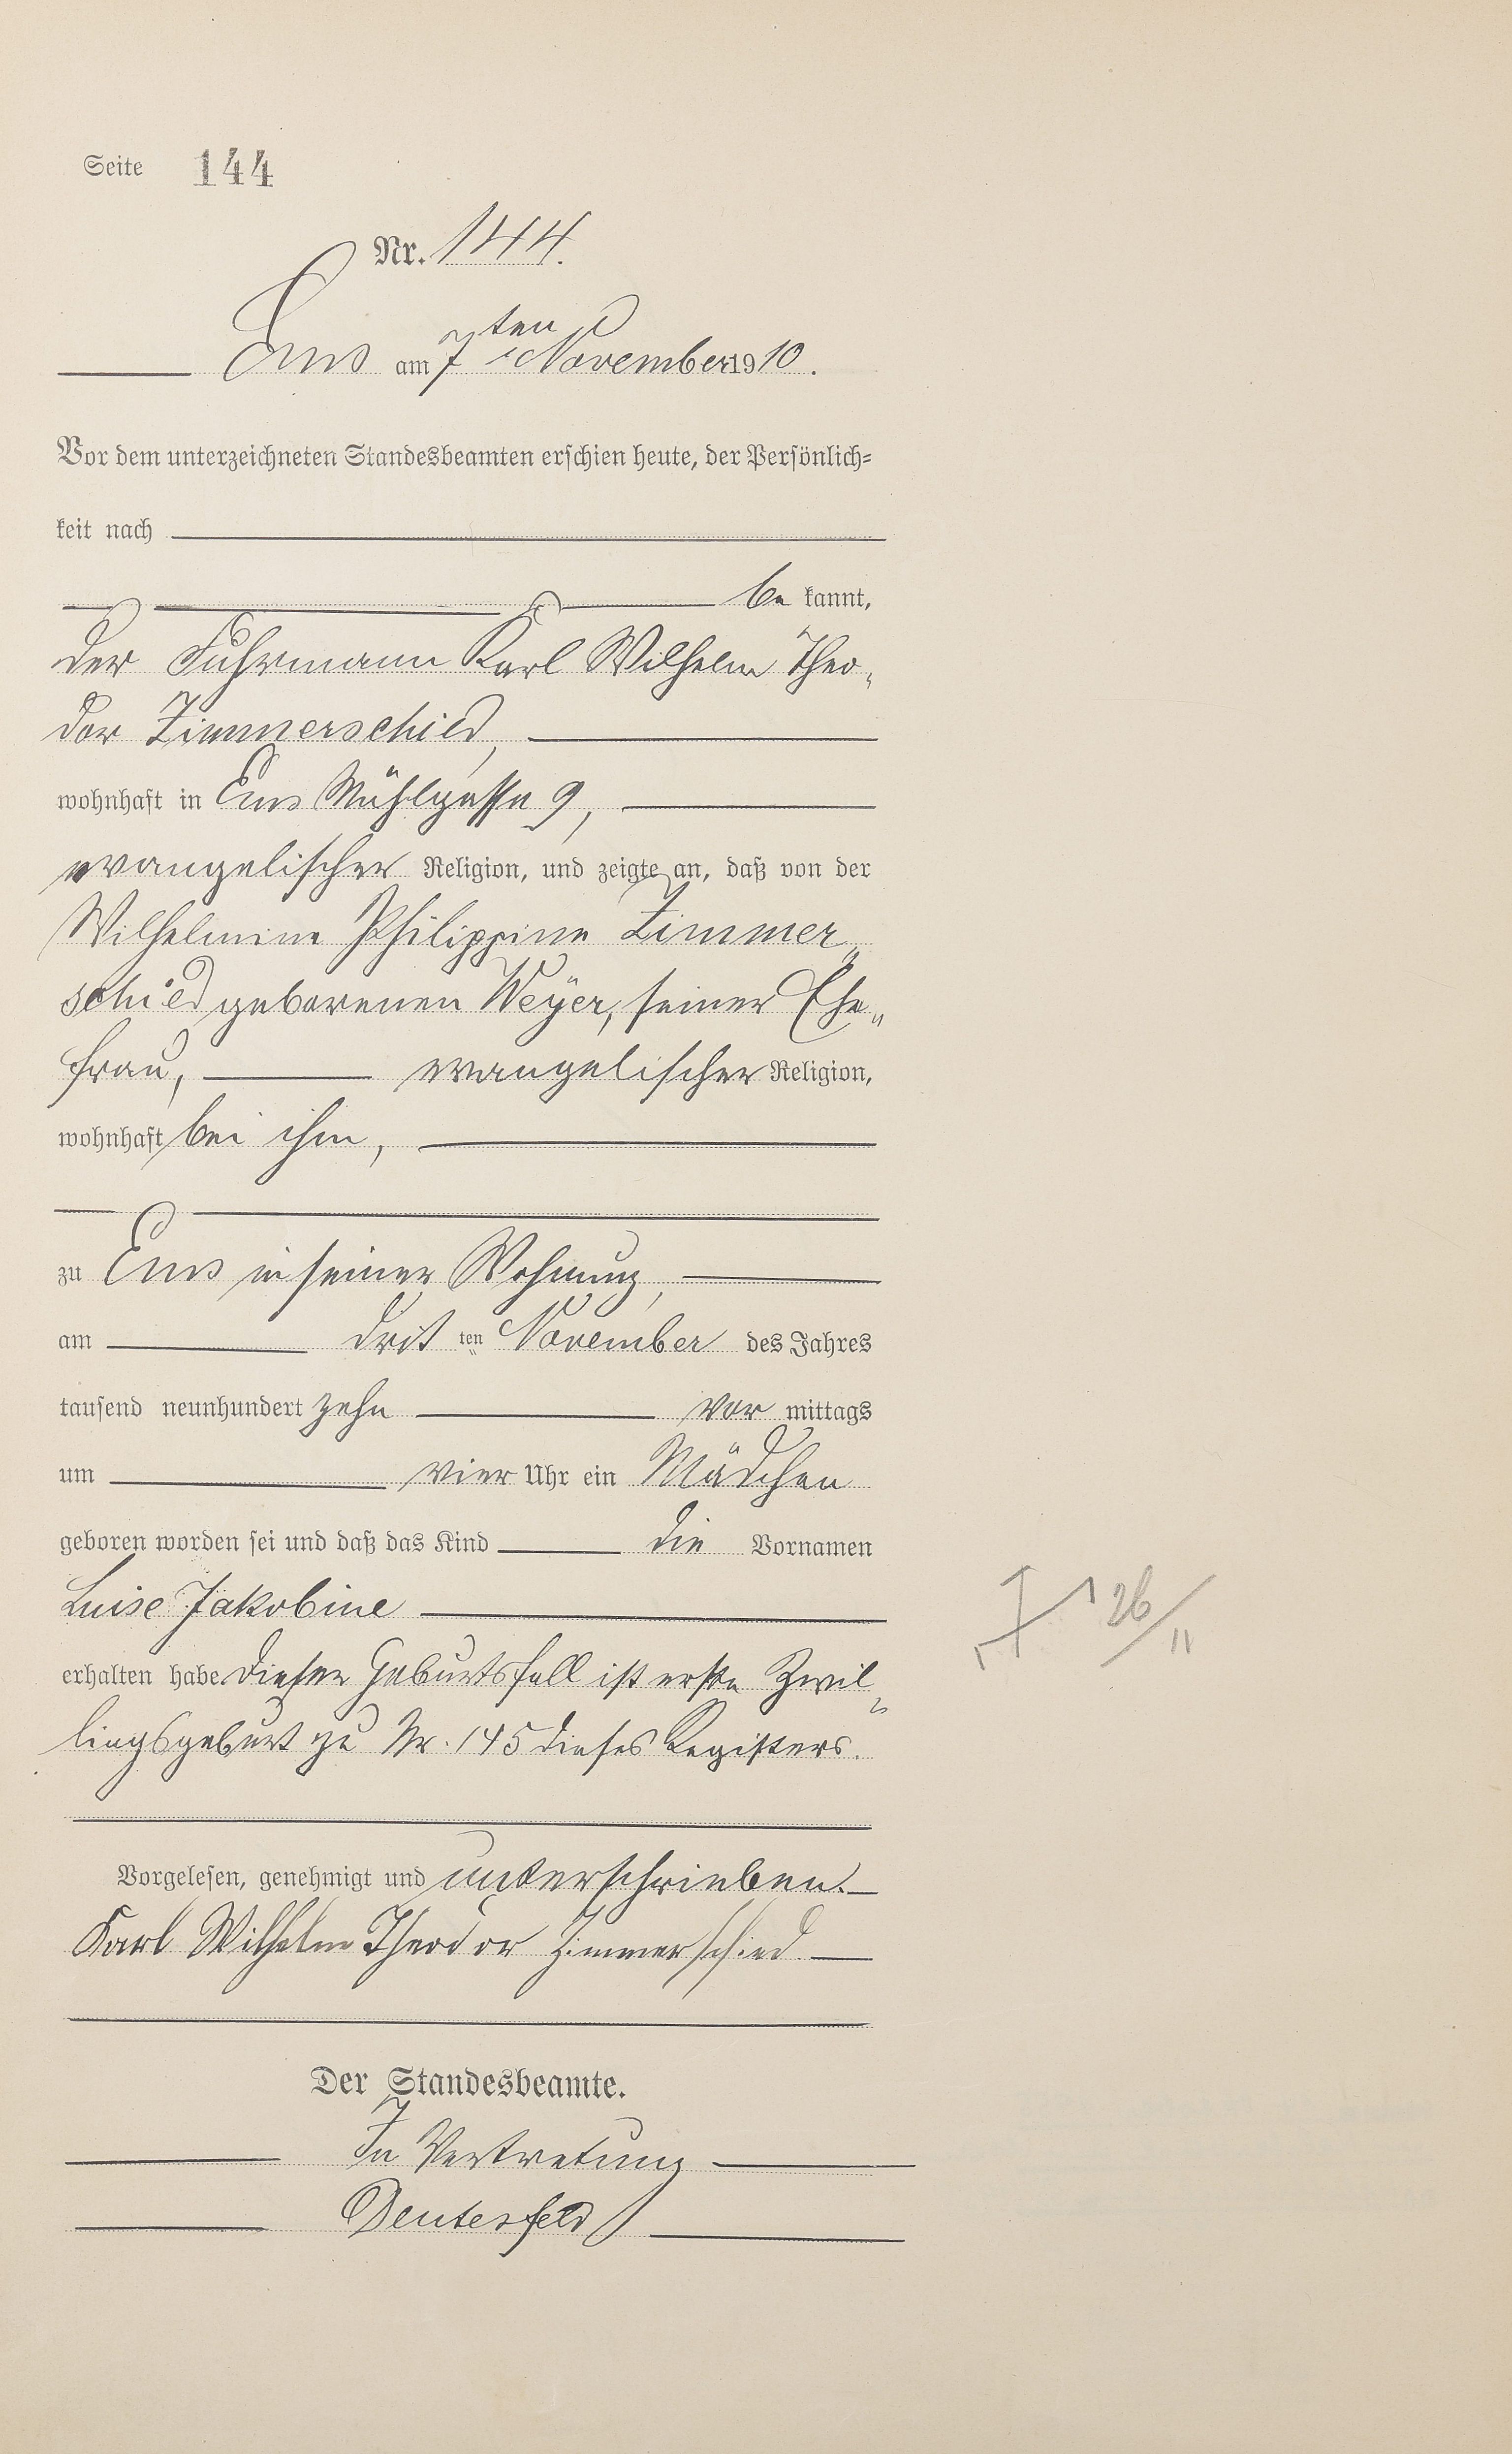 Seite 144
Nr. 144.
Ems am 7ten November 1910.
Vor dem unterzeichneten Standesbeamten erschien heute, der Persönlich=
keit nach
be kannt,
der Fuhrmann Karl Wilhelm Theo„
dor Zimmerschied,
wohnhaft in Ems Mühlgasse 9,
evangelischer Religion, und zeigte an, daß von der
Wilhelmine Philippine Zimmer„
schied geborenen Weyer, seiner Ehe„
frau, evangelischer Religion,
wohnhaft bei ihm,
zu Ems in seiner Wohnung,
am drit ten November des Jahres
tausend neunhundert zehn vor mittags
um vier Uhr ein Mädchen
geboren worden sei und daß das Kind die Vornamen
Luise Jakobine
erhalten habe. Dieser Geburtsfall ist erste Zwil„
lingsgeburt zu Nr. 145 dieses Registers.
Vorgelesen, genehmigt und unterschrieben.
Karl Wilhelm Theodor Zimmerschied
Der Standesbeamte.
In Vertretung
26/11